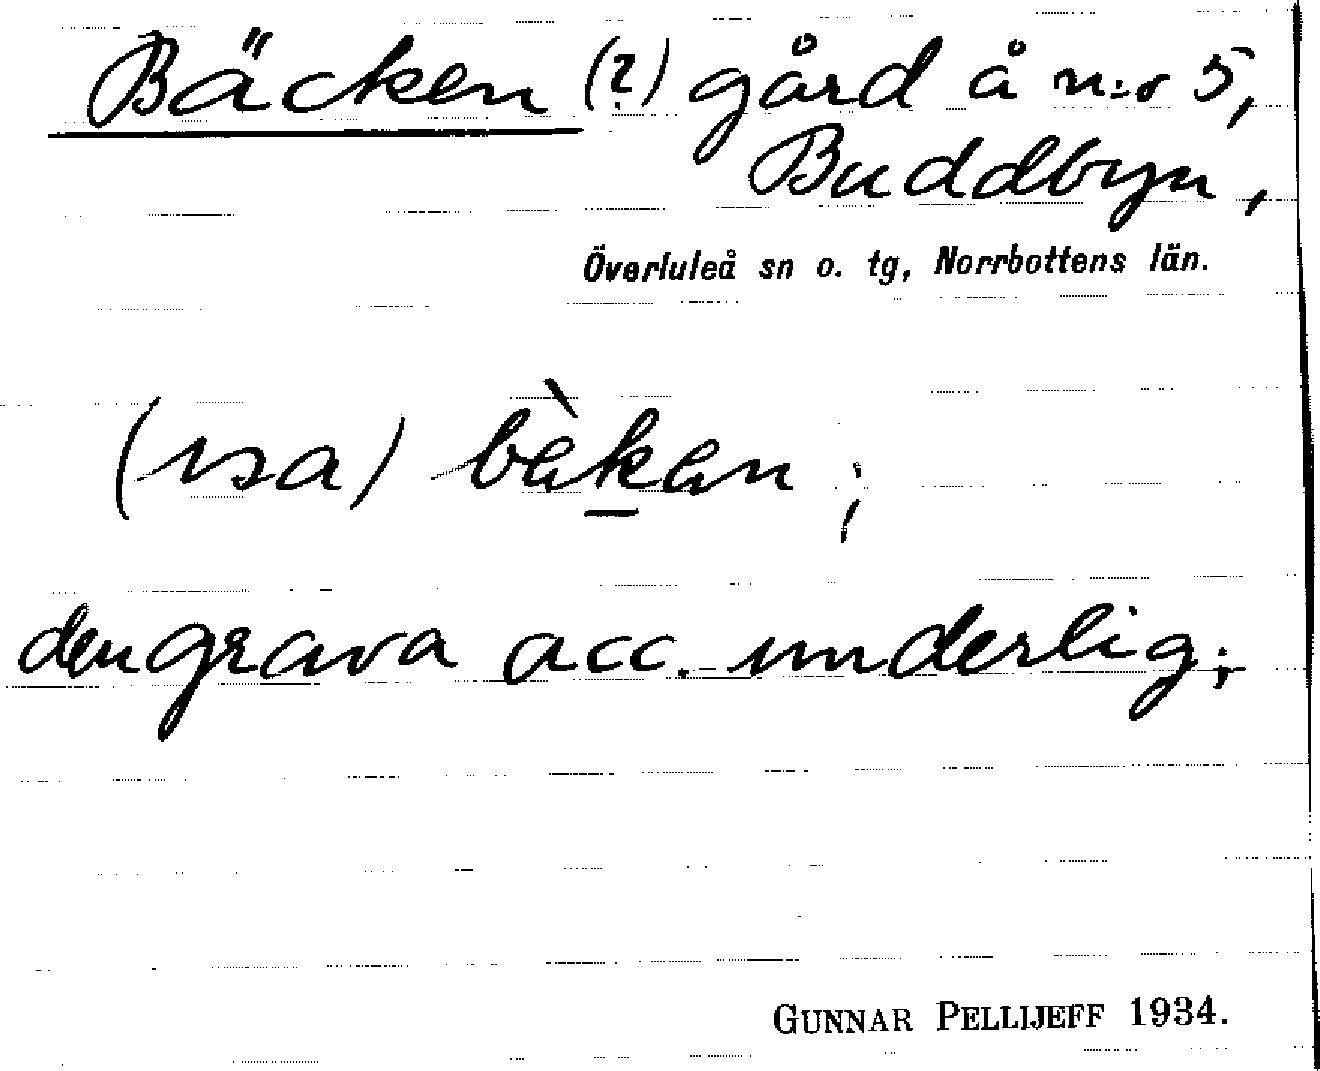 Bäcken (?) gård å n:o 5,
Buddbyn,
Överluleå sn o. tg, Norrbottens län.
(isa) bàkan ;
den grava acc. underlig;
GUNNAR PELLIJEFF 1934.